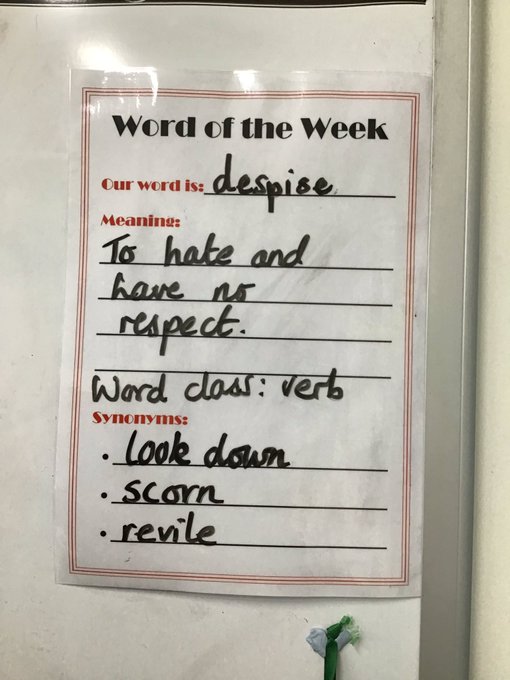 Word of the Week
Our word is: despise
Meaning:
To hate and
have no
respect.
Word class: verb
Synonyms:
• look down
• scorn
• revile